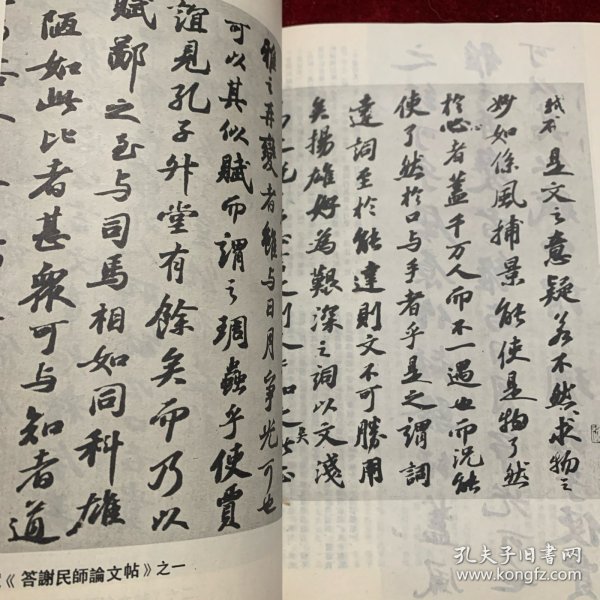 是文之意疑若不然求物之
妙如係風捕景能使是物了然
於心者蓋千万人而不一遇也而况能
使了然於口与手者乎是之謂詞
達詞至於能達則文不可勝用
矣揚雄好為艱深之詞以文淺
雅之再變者雖与日月爭光可也
可以其似賦而謂之琱蟲乎使賈
誼見孔子升堂有餘矣而乃以
賦鄙之至与司馬相如同科雄
陋如此比者甚衆可与知者道
《答謝民師論文帖》之一
孔夫子旧书网
www.kongfz.com